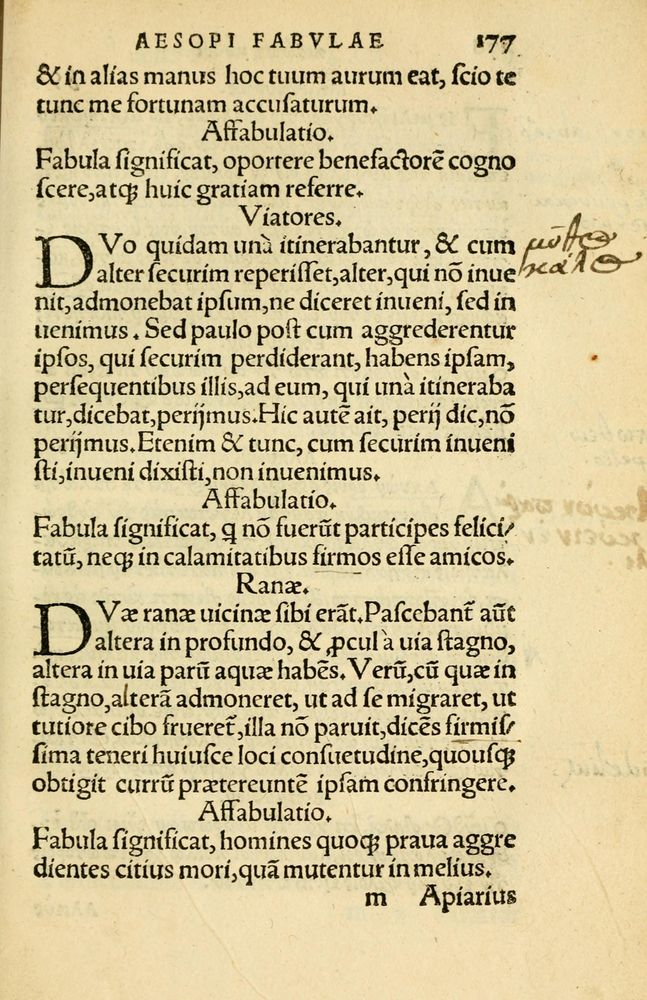 AESOPI FABVLAE 177
& in alias manus hoc tuum aurum eat, ſcio te
tunc me fortunam accuſaturum.
Affabulatio.
Fabula ſignificat, oportere benefactorē cogno
ſcere, atq; huic gratiam referre.
Viatores.
DVo quidam unà itinerabantur, & cum
alter ſecurim reperiſſet, alter, qui nō inue
nit, admonebat ipſum, ne diceret inueni, ſed in
uenimus. Sed paulo poſt cum aggrederentur
ipſos, qui ſecurim perdiderant, habens ipſam,
perſequentibus illis, ad eum, qui unà itineraba
tur, dicebat, perijmus. Hic autē ait, perij dic, nō
perijmus. Etenim & tunc, cum ſecurim inueni
ſti, inueni dixiſti, non inuenimus.
Affabulatio.
Fabula ſignificat, ꝗ nō fuerūt participes felici/
tatū, neq; in calamitatibus firmos eſſe amicos.
Ranæ.
DVæ ranæ uicinæ ſibi erāt. Paſcebant̄ aūt
altera in profundo, & ꝓcul à uia ſtagno,
altera in uia parū aquæ habēs. Verū, cū quæ in
ſtagno, alterā admoneret, ut ad ſe migraret, ut
tutiore cibo frueret̄, illa nō paruit, dicēs firmiſ/
ſima teneri huiuſce loci conſuetudine, quouſq;
obtigit currū prætereuntē ipſam confringere.
Affabulatio.
Fabula ſignificat, homines quoq; praua aggre
dientes citius mori, quā mutentur in melius.
m Apiarius